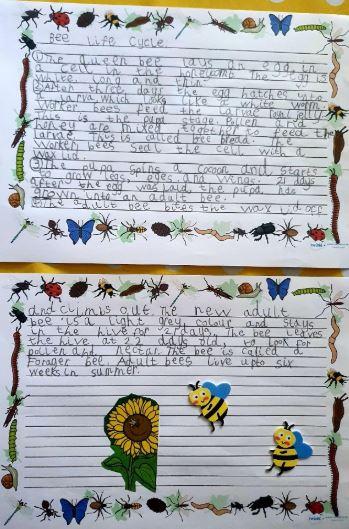 Bee Life Cycle.
① The Queen bee lays an egg in
a cell in the honeycomb. The egg is
white, long and thin.
② After three days the egg hatches into
a larva, which looks like a white worm.
Worker bees feed the larvae royal jelly.
This is the pupa stage. Pollen and
honey are mixed together to feed the
larvae. This is called bee bread. The
Worker bees seal the cells with a
wax lid.
③ The pupa spins a cocoon and starts
to grow legs, eyes and wings. 21 days
after the egg was laid, the pupa has
grown into an adult bee.
The adult bee bites the wax lid off
and climbs out. The new adult
bee is a light grey colour and stays
in the hive for days. The bee leaves
the hive at 22 days old, to look for
pollen and nectar. The bee is called a
Forager bee. Adult bees live upto six
weeks in summer.